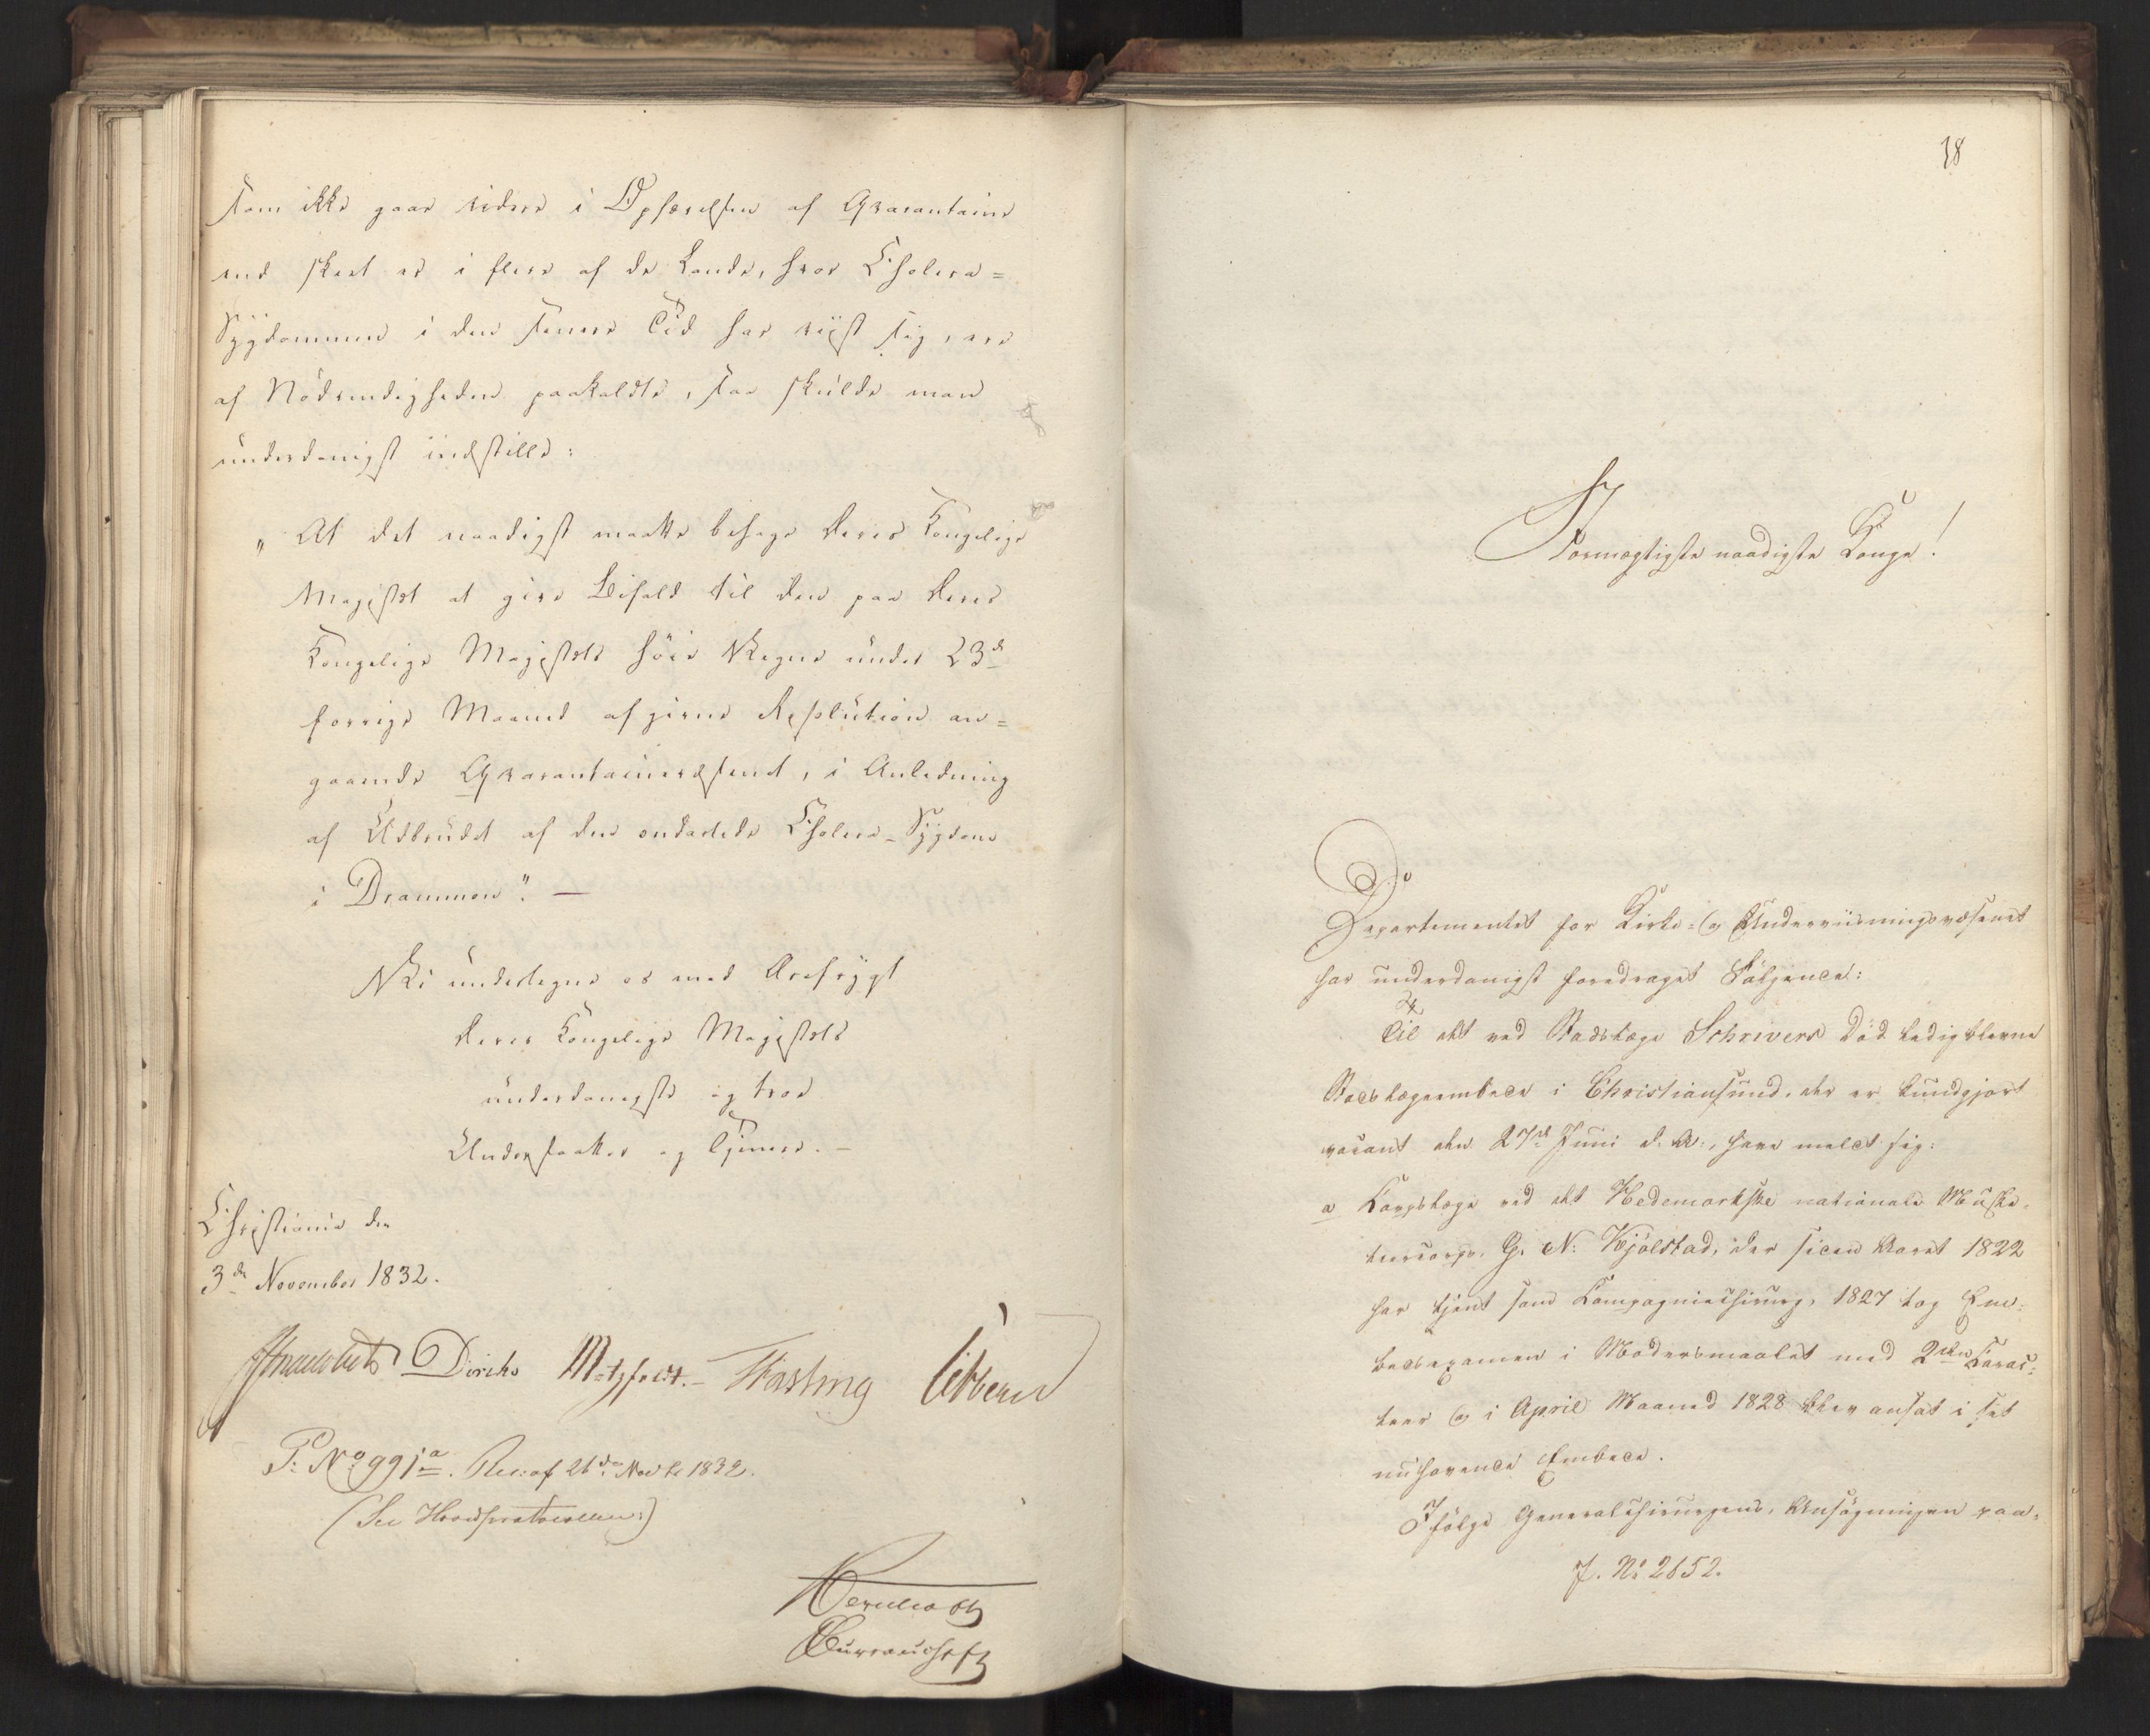 som ikke gaar videre i Ophævelsen af Qvarantaine
end skeet er i flere af de Lande, hvor Cholera=
Sygdommen i den senere Tid har viist sig, ere
af Nödvendigheden paakaldte, saa skulde man
underdanigst indstille:
"At det naadigst maatte behage Deres Kongelige
Majestet at give Bifald til den paa Deres
Kongelige Majestets höie Vegne under 23d
forrige Maaned afgivne Resolution an=
gaaende Qvarantainevæsenet, i Anledning
af Udbrudet af den ondartede Cholera-Sygdom
i Drammen". —
Vi undertegne os med Ærefrygt
Deres Kongelige Majestets
underdanigste og troe
Undersaatter og Tjenere. –
Christiania den
3de November 1832.
Diriks Motzfeldt. Fasting
P: No 991a. Res: af 26de Novbr 1832.
(See Hovedprotocollen:)
18
Stormægtigste naadigste Konge!
Departementet for Kirke- og Underviisningsvæsenet
har underdanigst foredraget Fölgende:
Til det ved Stadslæge Schrivers Död ledigblevne
Stadslægeembede i Christiansund, der er kundgjort
vacant den 27de Juni d: A:, have meldt sig:
a Corpslæge ved det Hedemarkske nationale Muske-
teercorps, G. N: Kjölstad, der siden Aaret 1822
har tjent som Compagniechirurg, 1827 tog Em-
bedsexamen i Modersmaalet med 2den Carac-
teer og i April Maaned 1828 blev ansat i sit
nuhavende Embede.
Ifölge Generalchirurgens, Ansögningen paa-
J. No 2652.